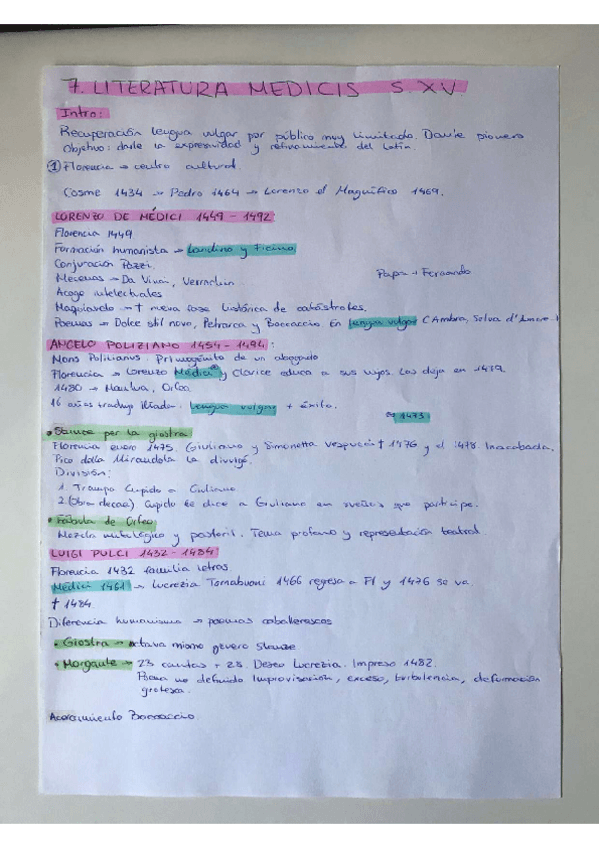 7. LITERATURA MEDICIS S. XV
Intro:
Recuperación lengua vulgar por público muy limitado. Dante pionero
Objetivo: darle la expresividad y refinamiento del latín.
① Florencia → centro cultural.
Cosme 1434 → Pedro 1464 → Lorenzo el Magnífico 1469.
LORENZO DE MÉDICI 1449 - 1492
Florencia 1449
Formación humanista → Landino y Ficino
Conjuración Pazzi.
Papa + Fernando
Mecenas → Da Vinci,
Acoge intelectuales
Maquiavelo → † nueva fase histórica de catástrofes.
Poemas → Dolce stil novo, Petrarca y Boccaccio En lengua vulgar (Ambra, Selva d'Amore)
ANGELO POLIZIANO 1454 - 1494:
Mons Politianus. Primogénito de un abogado
Florencia → Lorenzo Médici y Clarice educa a sus hijos. Los deja en 1479
1480 → Mantua, Orfeo.
16 años tradujo Ilíada. Lengua vulgar + éxito.
1473
• Stanze per la giostra
Florencia enero 1475. Giuliano y Simonetta Vespucci † 1476 y él 1478. Inacabada.
Pico della Mirandola la divulgó.
División:
1. Trampa Cupido a Giuliano
2. (Obra decae) Cupido le dice a Giuliano en sueños que participe.
• Fábula de Orfeo
Mezcla mitológico y pastoril. Tema profano y representación teatral
LUIGI PULCI 1432 - 1484
Florencia 1432 familia letras
Médici 1461 → Lucrezia Tornabuoni 1466 regresa a Fl y 1476 se va.
† 1484.
Diferencia humanismo → poemas caballerescos
• Giostra → octava mismo género Stanze
• Morgante → 23 cantos + 28. Deseo Lucrezia. Impreso 1482.
Poema no definido Improvisación, exceso, turbolencia, deformación
grotesca.
Acercamiento Boccaccio